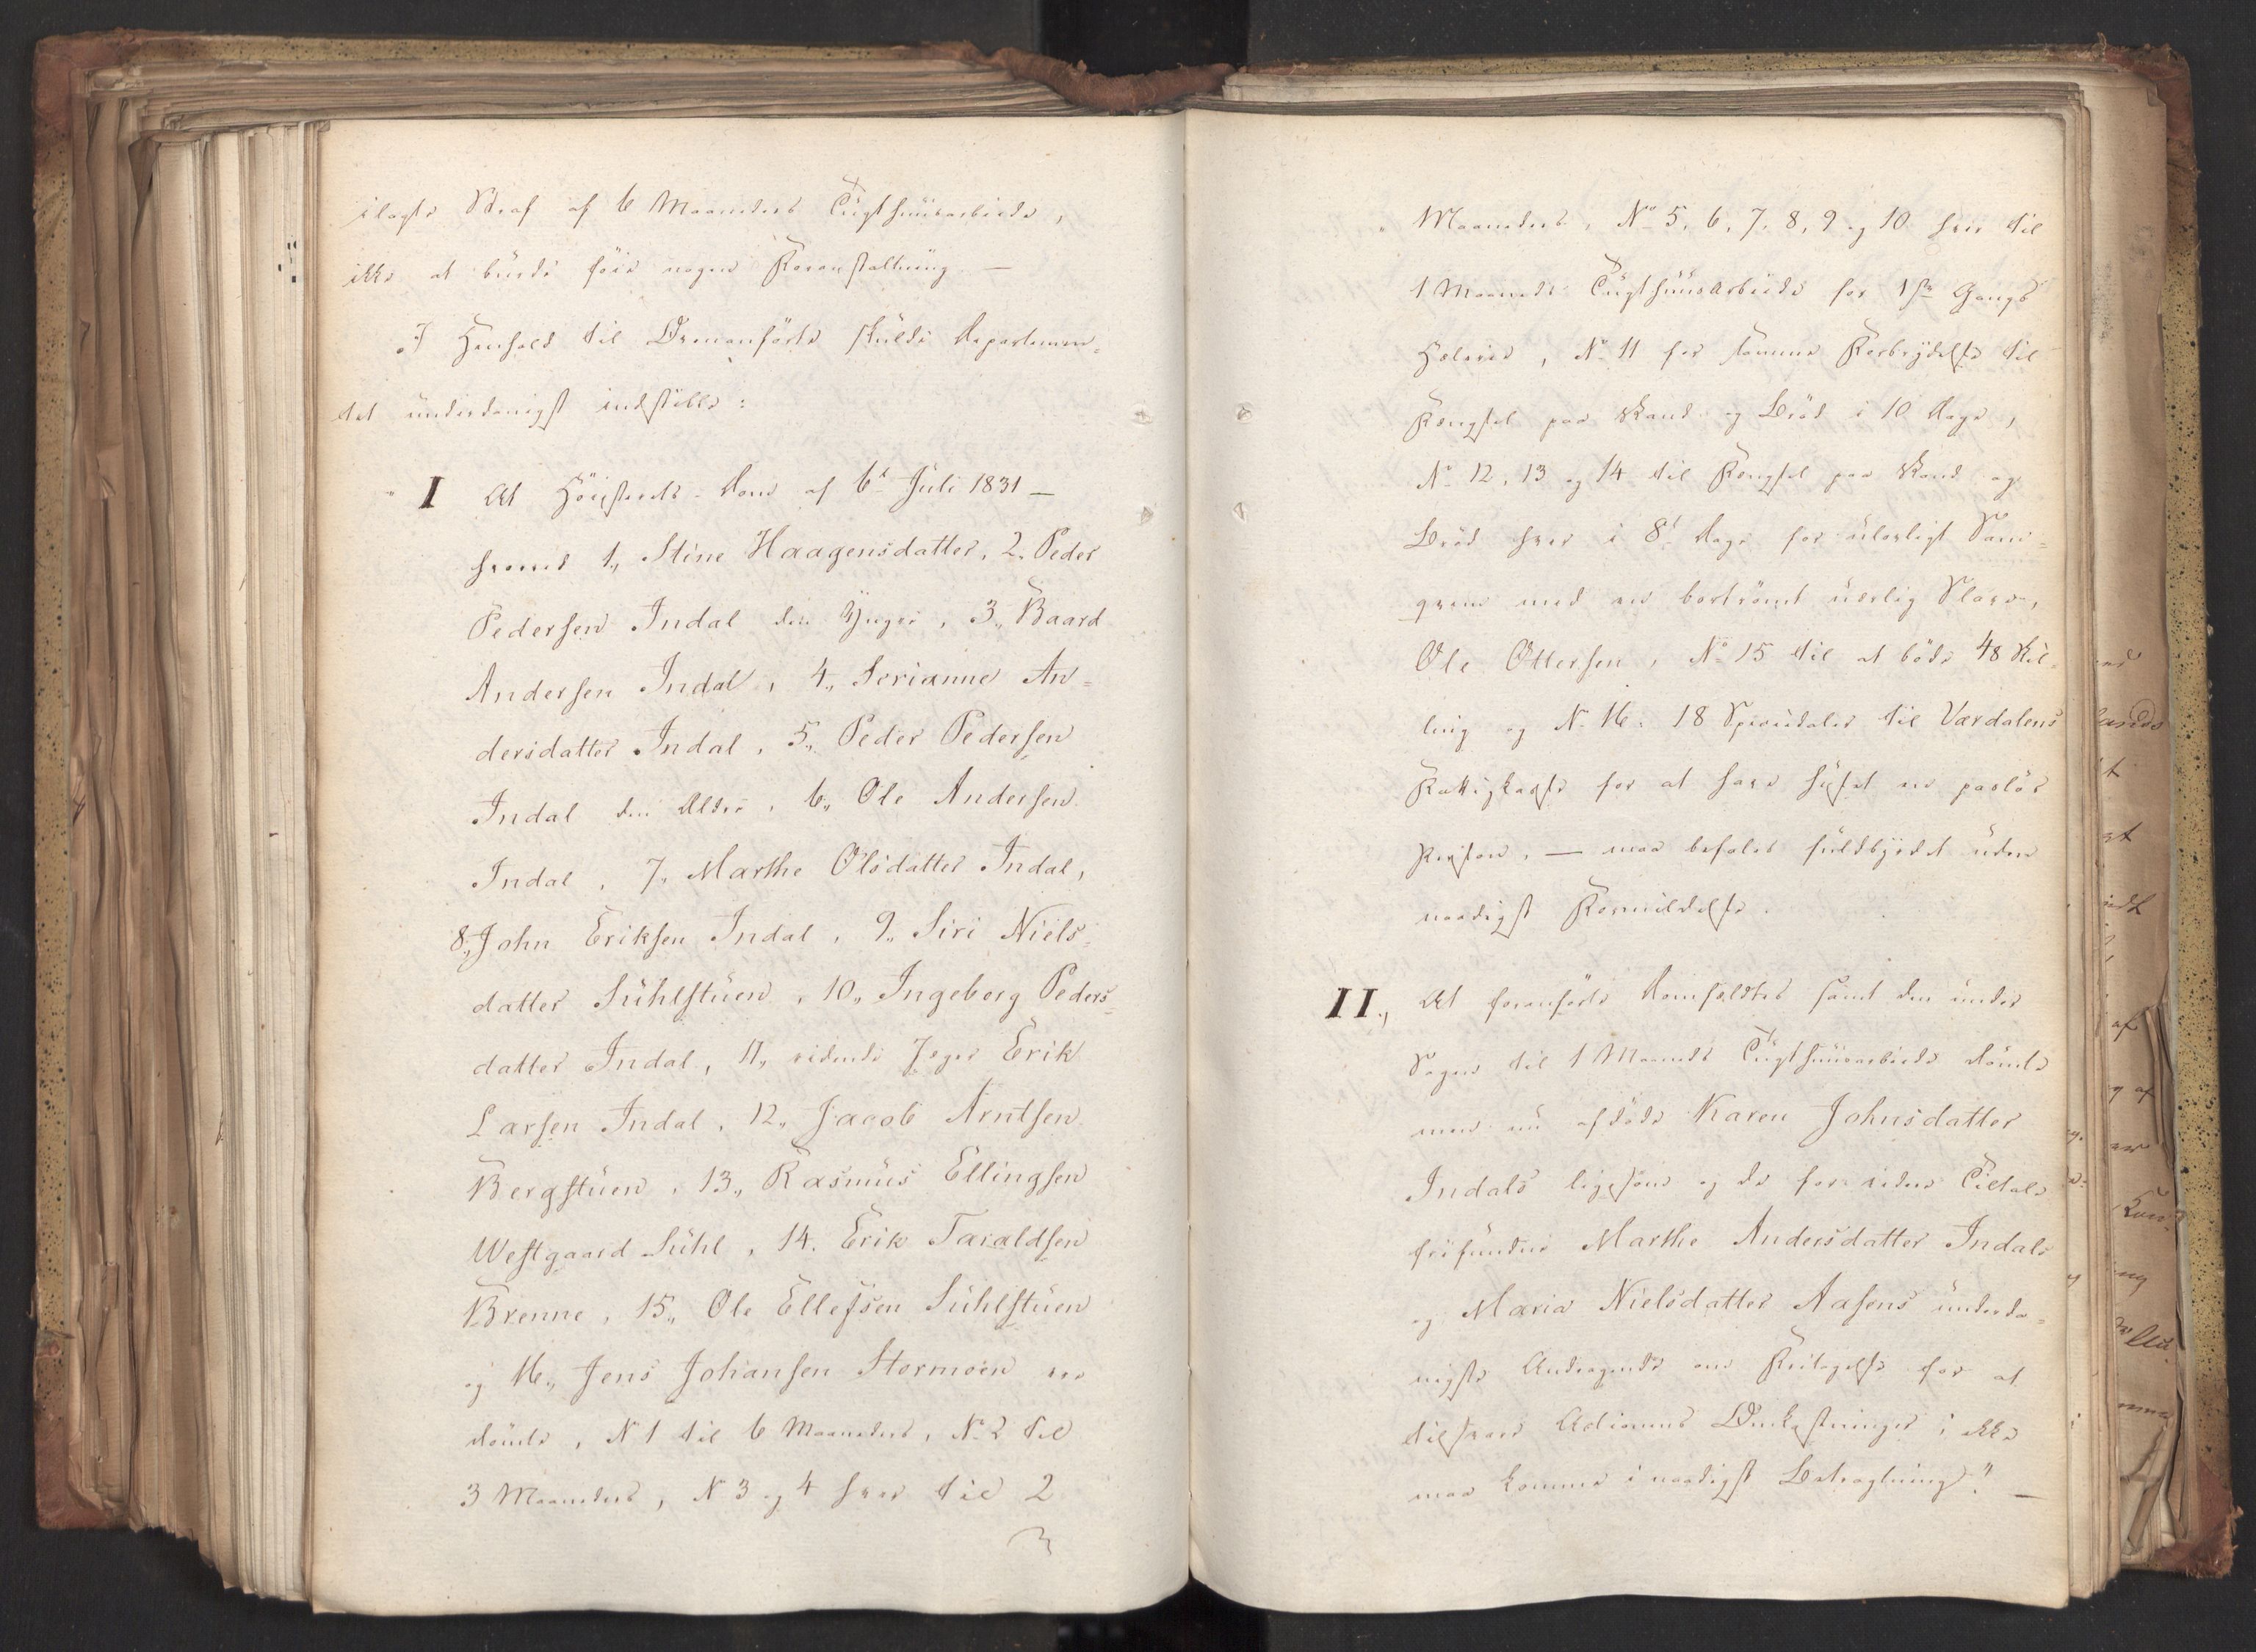 ilagte Straf af 6 Maaneders Tugthuusarbeide,
ikke at burde føie nogen Foranstaltning —
I Henhold til Ovenanførte skulde Departemen-
tet underdanigst indstille:
I At Høiesterets-Dom af 6te Juli 1831 —
hvorved 1., Stine Haagensdatter, 2. Peder
Pedersen Indal den Yngre, 3., Baard
Andersen Indal, 4., Serianne An-
dersdatter Indal, 5., Peder Pedersen
Indal den Ældre, 6., Ole Andersen
Indal, 7., Marthe Olsdatter Indal,
8., John Eriksen Indal, 9., Siri Niels-
datter Suhlstuen, 10., Ingeborg Peders-
datter Indal, 11., ridende Jæger Erik
Larsen Indal, 12., Jacob Arntsen
Bergstuen, 13., Rasmus Ellingsen
Westgaard Suhl, 14. Erik Taraldsen
Brenne, 15., Ole Ellefsen Suhlstuen
og 16., Jens Johansen Stormoen ere
dømte, N 1 til 6 Maaneders, No 2 til
3 Maaneders, N 3 og 4 hver til 2
Maaneders, No 5, 6, 7, 8, 9 og 10 hver til
1 Maaneds Tugthuusarbeide for 1ste Gangs
Hæleri, No 11 for samme Forbrydelse til
Fængsel paa Vand og Brød i 10 Dage,
No 12, 13 og 14 til Fængsel paa Vand og
Brød hver i 8te Dage for ulovligt Sam-
qvem med en bortrømt uærlig Slave,
Ole Ottersen, No 15 til at bøde 48 Skil-
ling og N. 16. 18 Speciedaler til Værdalens
Fattigkasse for at have huset en pasløs
Person, — maa befales fuldbyrdet uden
naadigst Formildelse.
II., At foranførte Domfældtes samt den under
Sagen til 1 Maaneds Tugthuusarbeide dømte
men nu afdøde Karen Johnsdatter
Indals ligesom og de for videre Tiltale
frifundne Marthe Andersdatter Indals
og Maria Nielsdatter Aasens underda-
nigste Andragende om Fritagelse for at
tilsvare Actionens Omkostninger, ikke
maa komme i naadigst Betragtning." —